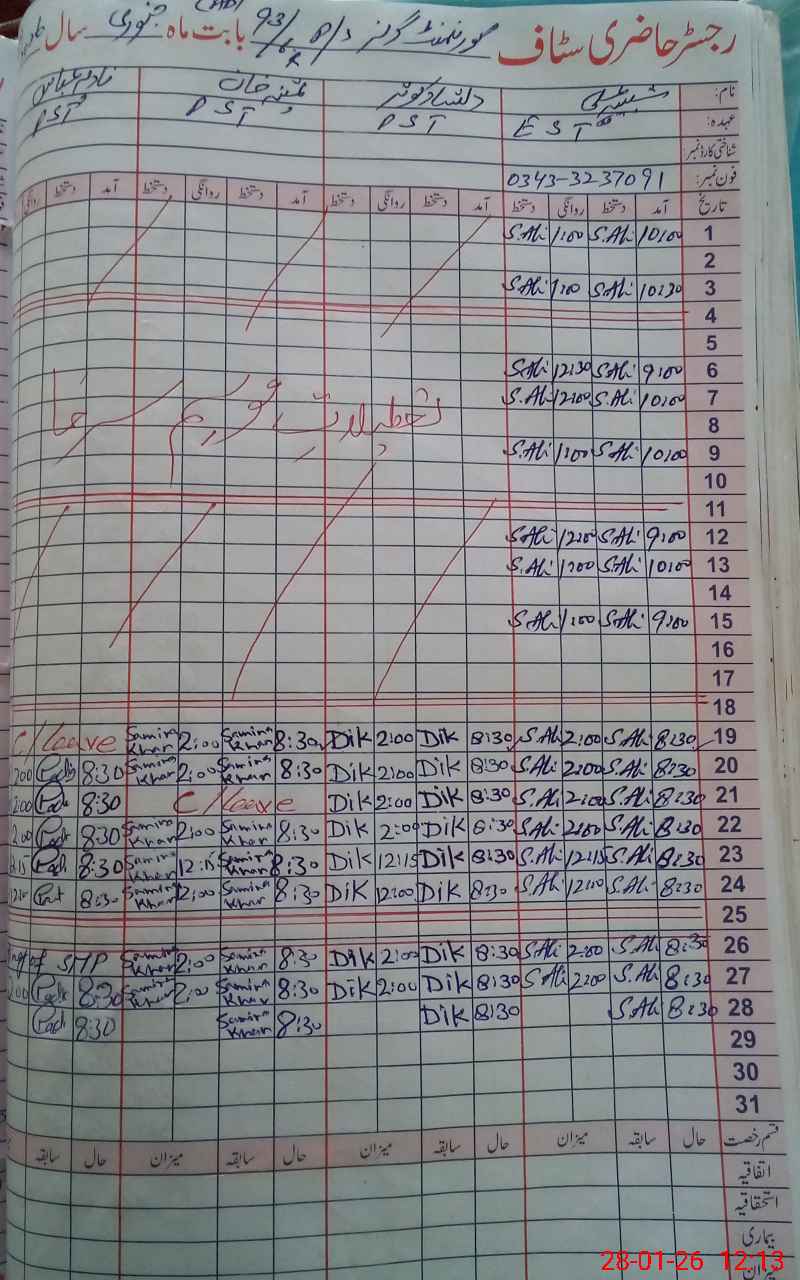 رجسٹر حاضری سٹاف گورنمنٹ گرلز P/S 93/ بابت ماہ جنوری سال
نام:
عہدہ: EST PST PST PST
شناختی کارڈ نمبر:
فون نمبر: 0343-3237091
تاریخ آمد دستخط روانگی دستخط آمد دستخط روانگی دستخط آمد دستخط روانگی دستخط آمد دستخط روانگی
1 10:00 S.Ali 1:00 S.Ali
2
3 10:30 S.Ali 1:00 S.Ali
4
5
6 9:00 S.Ali 12:30 S.Ali
7 10:00 S.Ali 12:00 S.Ali
تعطیلات موسم سرما
8
9 10:00 S.Ali 1:00 S.Ali
10
11
12 9:00 S.Ali 12:00 S.Ali
13 10:00 S.Ali 1:00 S.Ali
14
15 9:00 S.Ali 1:00 S.Ali
16
17
18
19 8:30 S.Ali 2:00 S.Ali 8:30 Dik 2:00 Dik 8:30 Samina Khan 2:00 Samina Khan C/leave
20 8:30 S.Ali 2:00 S.Ali 8:30 Dik 2:00 Dik 8:30 Samina Khan 2:00 Samina Khan 8:30 2:00
21 8:30 S.Ali 2:00 S.Ali 8:30 Dik 2:00 Dik C/leave 8:30 2:00
22 8:30 S.Ali 2:00 S.Ali 8:30 Dik 2:00 Dik 8:30 Samina Khan 2:00 Samina Khan 8:30 2:00
23 8:30 S.Ali 12:15 S.Ali 8:30 Dik 12:15 Dik 8:30 Samina Khan 12:15 Samina Khan 8:30
24 8:30 S.Ali 12:00 S.Ali 8:30 Dik 12:00 Dik 8:30 Samina Khan 2:00 Samina Khan 8:30
25
26 8:30 S.Ali 2:00 S.Ali 8:30 Dik 2:00 Dik 8:30 Samina Khan 2:00 Samina Khan
27 8:30 S.Ali 2:00 S.Ali 8:30 Dik 2:00 Dik 8:30 Samina Khan 2:00 Samina Khan 8:30 2:00
28 8:30 S.Ali 8:30 Dik 8:30 Samina Khan 8:30
29
30
31
قسم رخصت حال سابقہ میزان حال سابقہ میزان حال سابقہ میزان حال سابقہ
اتفاقیہ
استحقاقیہ
بیماری
میزان
28-01-26 12:13